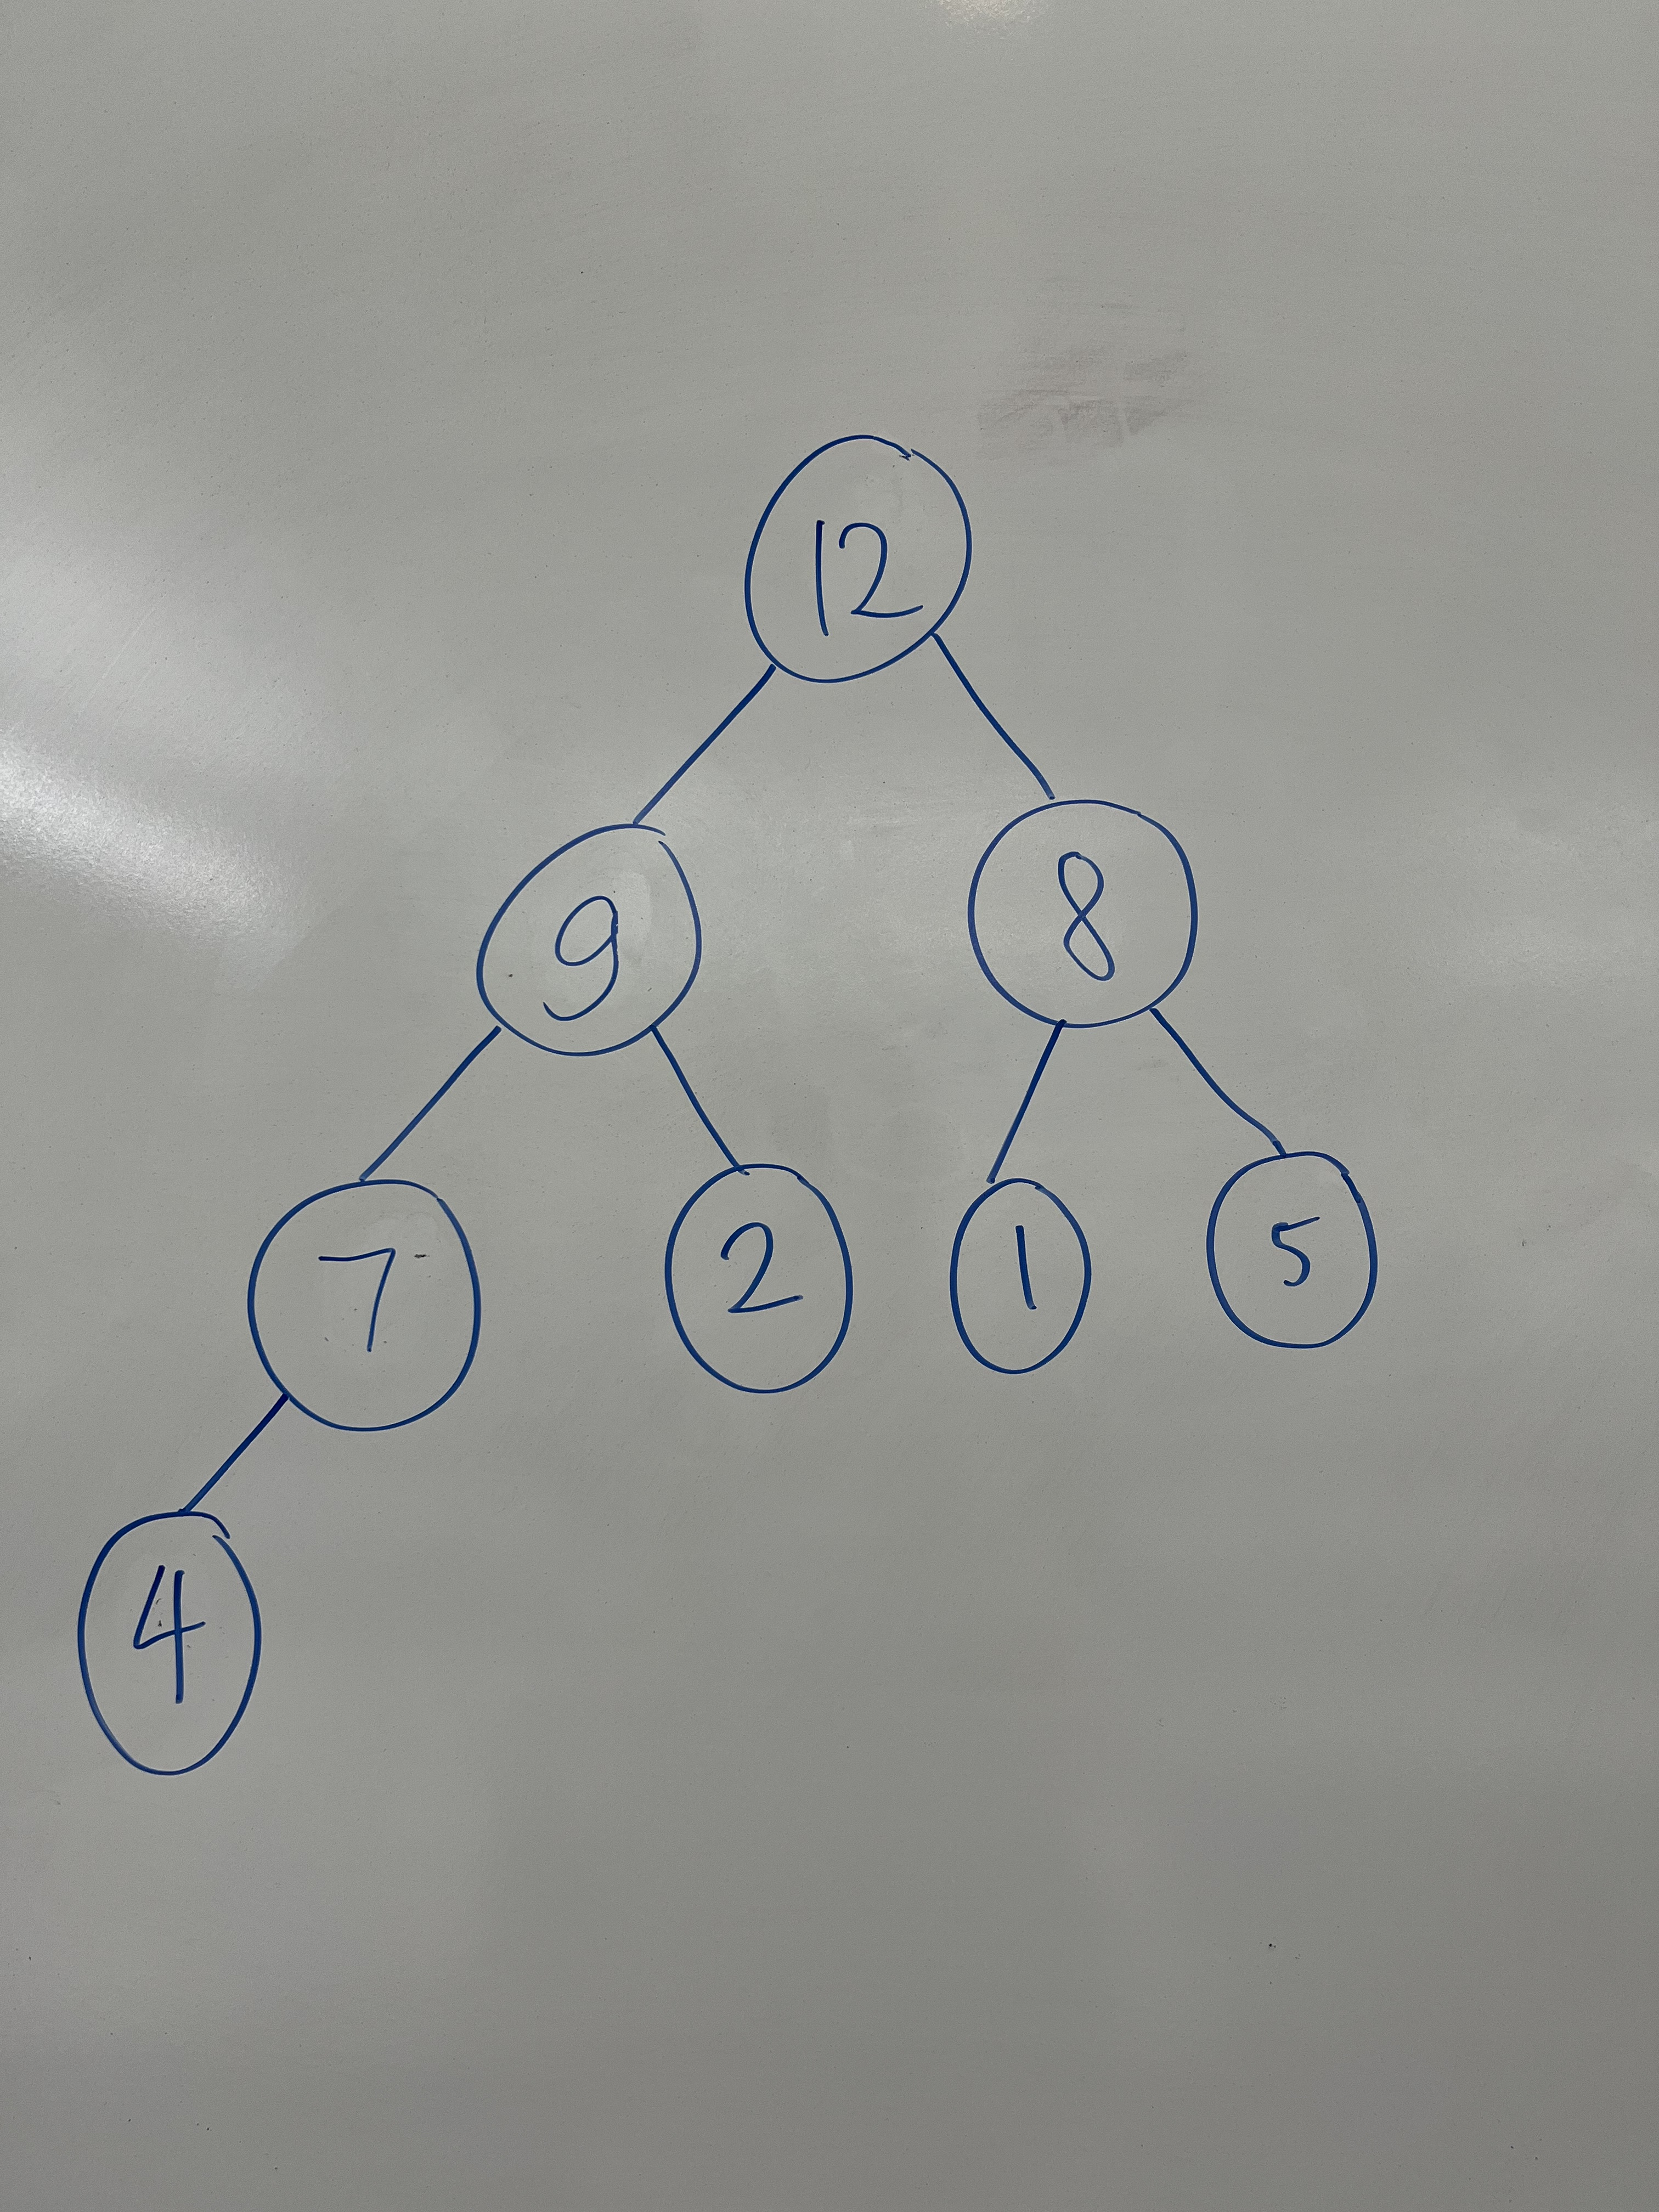 12
9 8
7 2 1 5
4